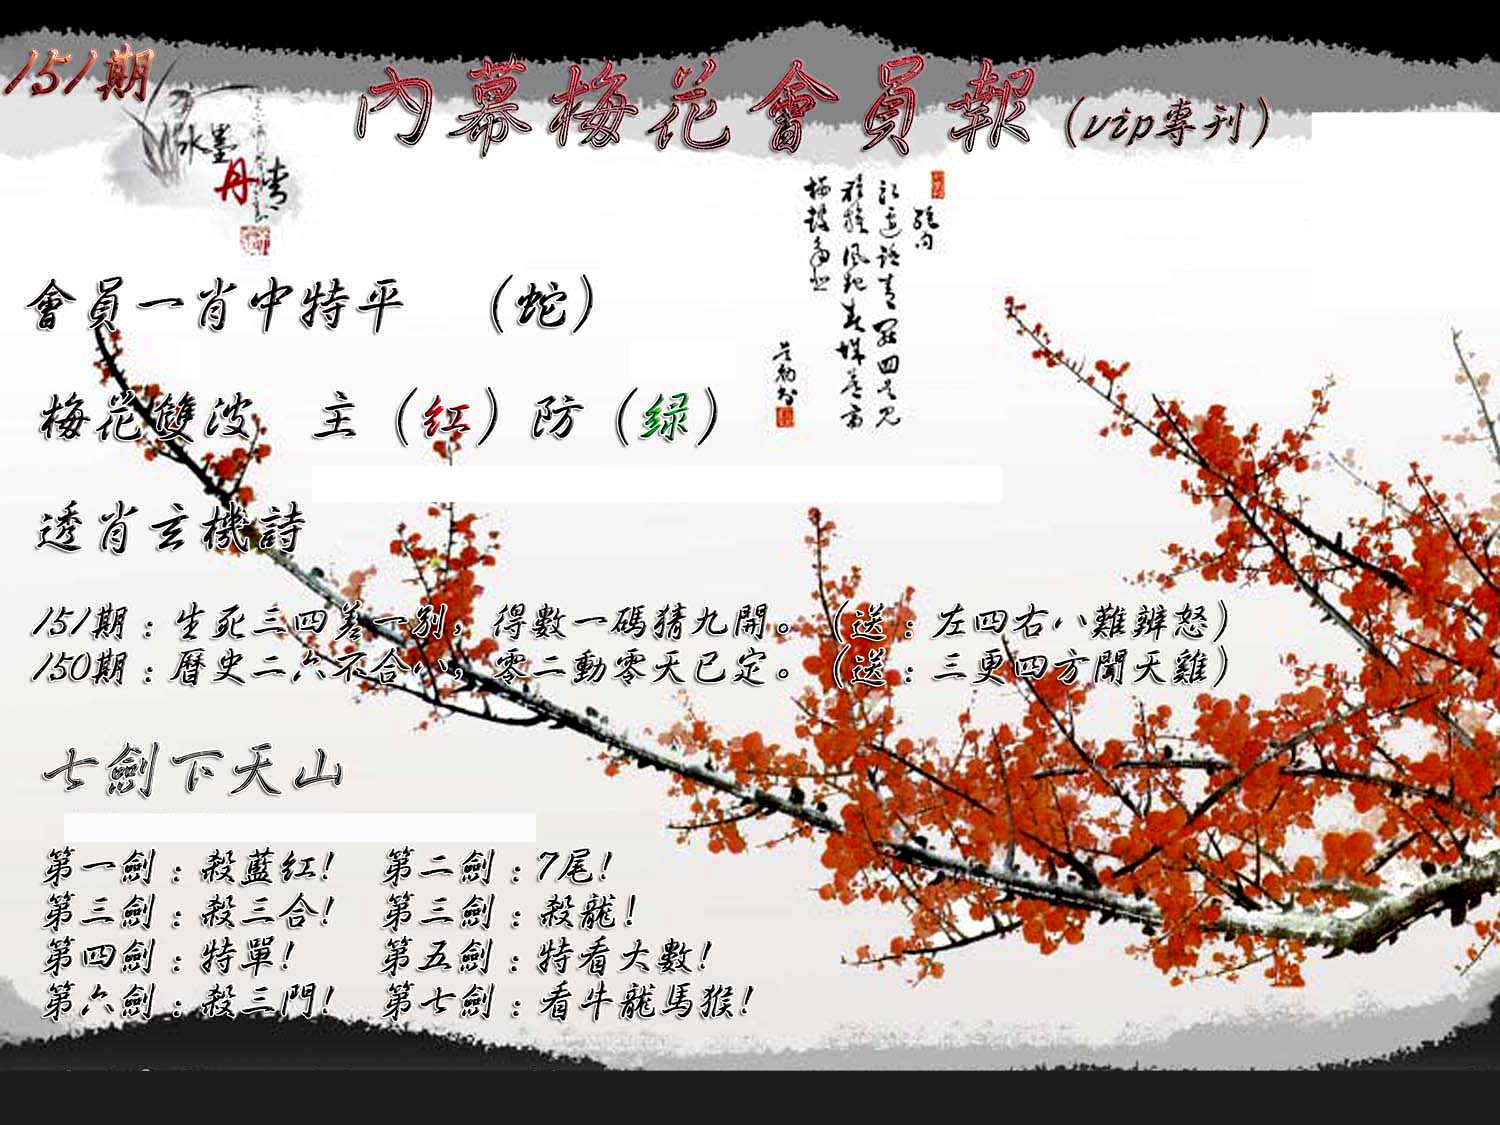 151期
內幕梅花會員報(vip專刊)
水墨
丹青
會員一肖中特平 (蛇)
梅花雙波 主(红)防(绿)
透肖玄機詩
151期:生死三四差一別,得數一碼猜九開。(送:左四右八難辨怒)
150期:曆史二六不合八,零二動零天已定。(送:三更四方聞天雞)
七劍下天山
第一劍:殺藍紅! 第二劍:7尾!
第三劍:殺三合! 第三劍:殺龍!
第四劍:特單! 第五劍:特看大數!
第六劍:殺三門! 第七劍:看牛龍馬猴!